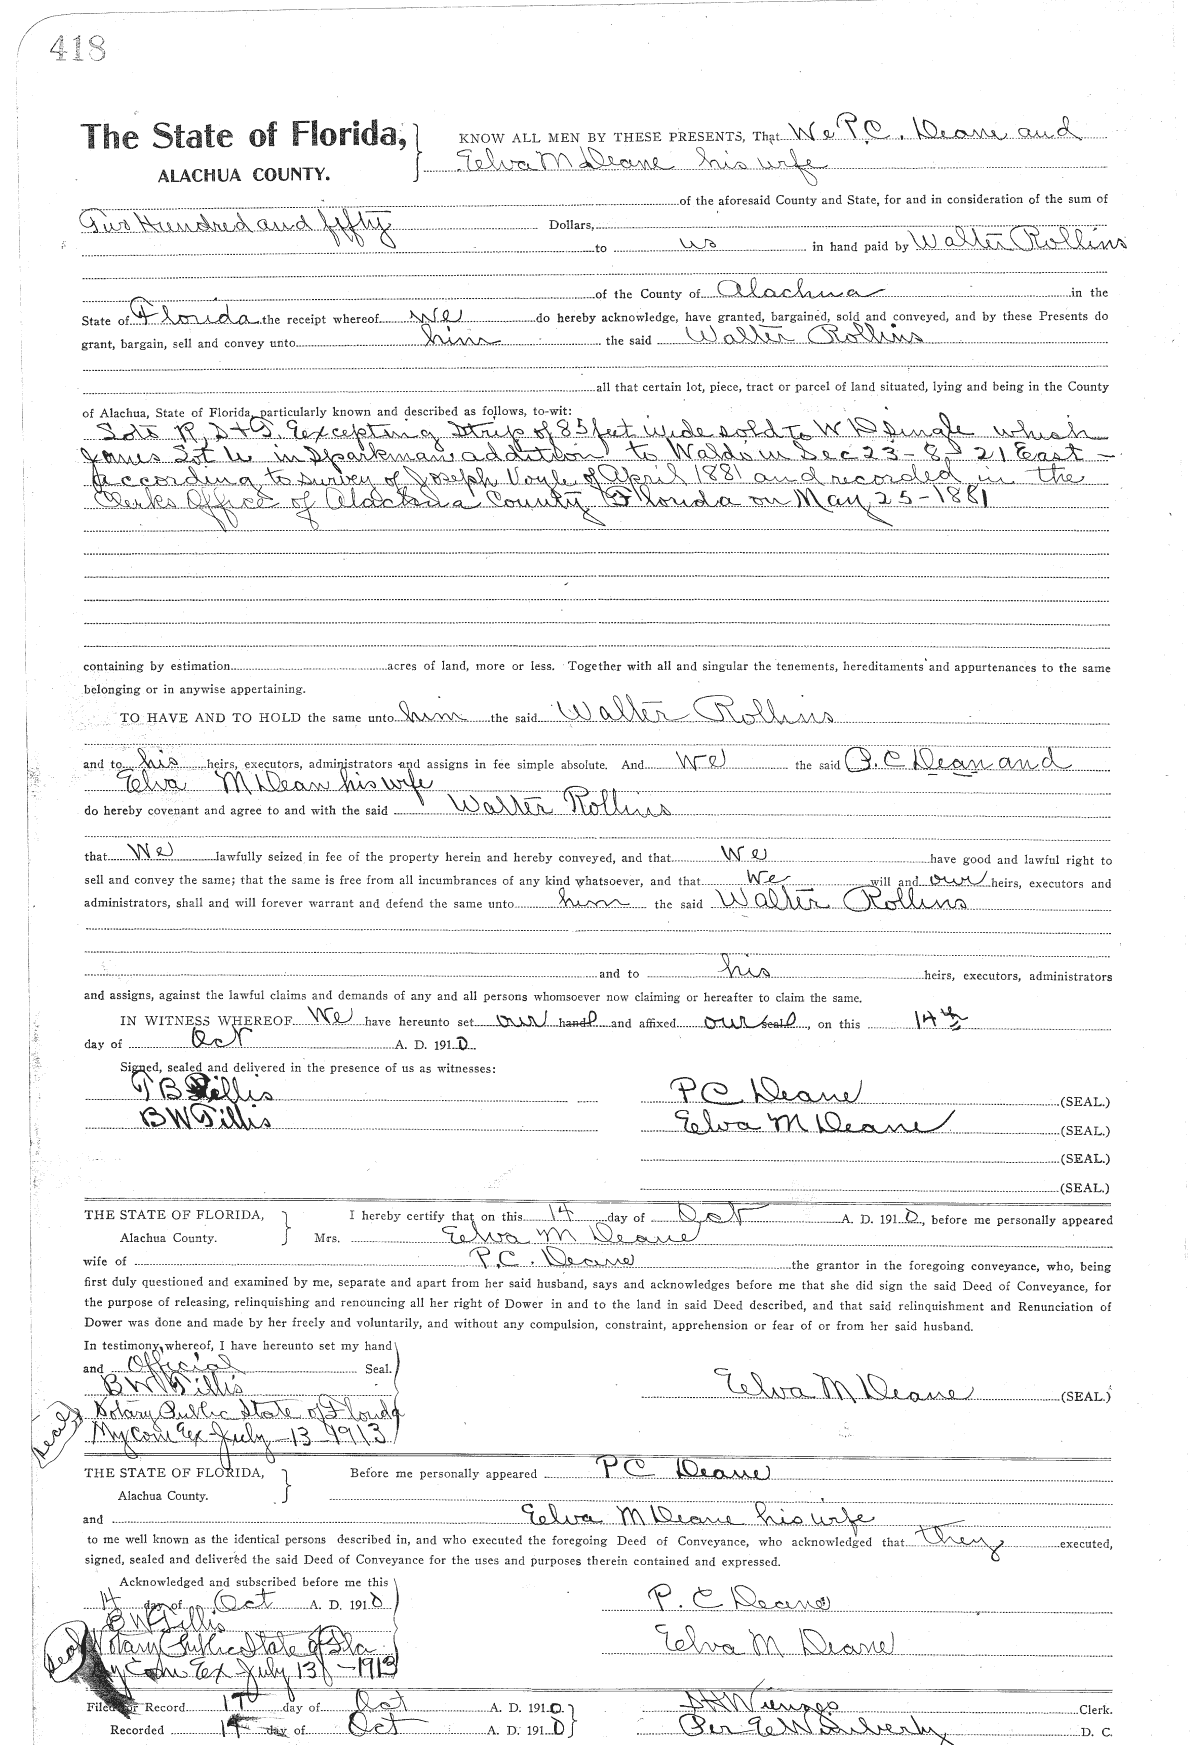 418
The State of Florida, KNOW ALL MEN BY THESE PRESENTS, That We P.C. Deane and
ALACHUA COUNTY. Elva M Deane his wife
of the aforesaid County and State, for and in consideration of the sum of
Two Hundred and fifty Dollars,
to us in hand paid by Walter Rollins
of the County of Alachua in the
State of Florida the receipt whereof we do hereby acknowledge, have granted, bargained, sold and conveyed, and by these Presents do
grant, bargain, sell and convey unto him the said Walter Rollins
all that certain lot, piece, tract or parcel of land situated, lying and being in the County
of Alachua, State of Florida, particularly known and described as follows, to-wit:
Lots R, S & T. Excepting Strip of 85 feet wide sold to W D which
Joins Lot U in Sparkman addition to Waldo in Sec 23 - 8, 21 East -
According to survey of Joseph Voyle of April 1881 and recorded in the
Clerks Office of Alachua County Florida on May 25 - 1881
containing by estimation acres of land, more or less. Together with all and singular the tenements, hereditaments and appurtenances to the same
belonging or in anywise appertaining.
TO HAVE AND TO HOLD the same unto him the said Walter Rollins
and to his heirs, executors, administrators and assigns in fee simple absolute. And We the said P. C Dean and
Elva M Dean his wife
do hereby covenant and agree to and with the said Walter Rollins
that We lawfully seized in fee of the property herein and hereby conveyed, and that We have good and lawful right to
sell and convey the same; that the same is free from all incumbrances of any kind whatsoever, and that We will and our heirs, executors and
administrators, shall and will forever warrant and defend the same unto him the said Walter Rollins
and to his heirs, executors, administrators
and assigns, against the lawful claims and demands of any and all persons whomsoever now claiming or hereafter to claim the same.
IN WITNESS WHEREOF We have hereunto set our hand and affixed our seal, on this 14th
day of Oct A. D. 1910
Signed, sealed and delivered in the presence of us as witnesses:
T B Tillis P C Deane (SEAL.)
B W Tillis Elva M Deane (SEAL.)
(SEAL.)
(SEAL.)
THE STATE OF FLORIDA, I hereby certify that on this 14 day of Oct A. D. 1910, before me personally appeared
Alachua County. Mrs. Elva M Deane
wife of P.C. Deane the grantor in the foregoing conveyance, who, being
first duly questioned and examined by me, separate and apart from her said husband, says and acknowledges before me that she did sign the said Deed of Conveyance, for
the purpose of releasing, relinquishing and renouncing all her right of Dower in and to the land in said Deed described, and that said relinquishment and Renunciation of
Dower was done and made by her freely and voluntarily, and without any compulsion, constraint, apprehension or fear of or from her said husband.
In testimony whereof, I have hereunto set my hand
and Official Seal.
B W Tillis Elva M Deane (SEAL.)
Seal Notary Public State of Florida
My Com Ex July - 13 - 1913
THE STATE OF FLORIDA, Before me personally appeared P C Deane
Alachua County.
and Elva M Deane his wife
to me well known as the identical persons described in, and who executed the foregoing Deed of Conveyance, who acknowledged that they executed,
signed, sealed and delivered the said Deed of Conveyance for the uses and purposes therein contained and expressed.
Acknowledged and subscribed before me this
14 day of Oct A. D. 1910 P. C Deane
B W Tillis
Seal Notary Public State of Fla Elva M Deane
My Com Ex July 13 - 1913
Filed for Record 17 day of Oct A. D. 1910. S H Wienges Clerk.
Recorded day of Oct A. D. 1910 Per D. C.